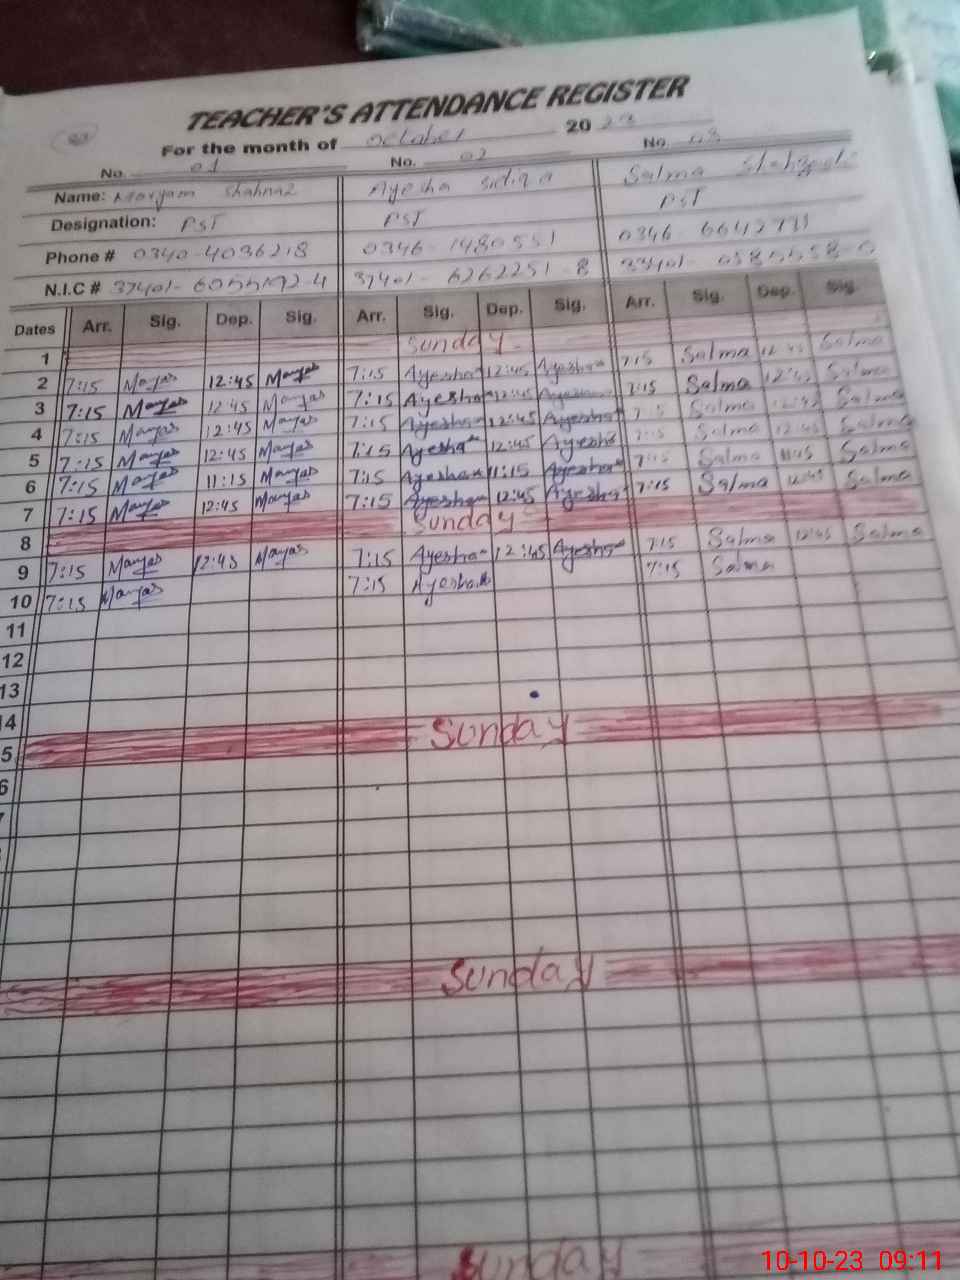 TEACHER'S ATTENDANCE REGISTER
For the month of October 2023
No. 01 No. 02 No. 03
Name: Maryam Shahnaz Ayesha Sidiqa Salma
Designation: PST PST PST
Phone # 0340-4036218 0346-1480551 0346-
N.I.C # 37401- 37401-6262251-8
Dates Arr. Sig. Dep. Sig. Arr. Sig. Dep. Sig. Arr. Sig. Dep. Sig.
1 Sunday
2 7:15 Maryas 12:45 Maryas 7:15 Ayesha 12:45 Ayesha 7:15 Salma 12:45 Salma
3 7:15 Maryas 12:45 Maryas 7:15 Ayesha 12:45 Ayesha 7:15 Salma 12:45 Salma
4 7:15 Maryas 12:45 Maryas 7:15 Ayesha 12:45 Ayesha 7:15 Salma 12:45 Salma
5 7:15 Maryas 12:45 Maryas 7:15 Ayesha 12:45 Ayesha 7:15 Salma 12:45 Salma
6 7:15 Maryas 11:15 Maryas 7:15 Ayesha 11:15 Ayesha 7:15 Salma 11:15 Salma
7 7:15 Maryas 12:45 Maryas 7:15 Ayesha 12:45 Ayesha 7:15 Salma 12:45 Salma
8 Sunday
9 7:15 Maryas 12:45 Maryas 7:15 Ayesha 12:45 Ayesha 7:15 Salma 12:45 Salma
10 7:15 Maryas 7:15 Ayesha 7:15 Salma
11
12
13
14
5 Sunday
6
7
Sunday
Sunday
10-10-23 09:11